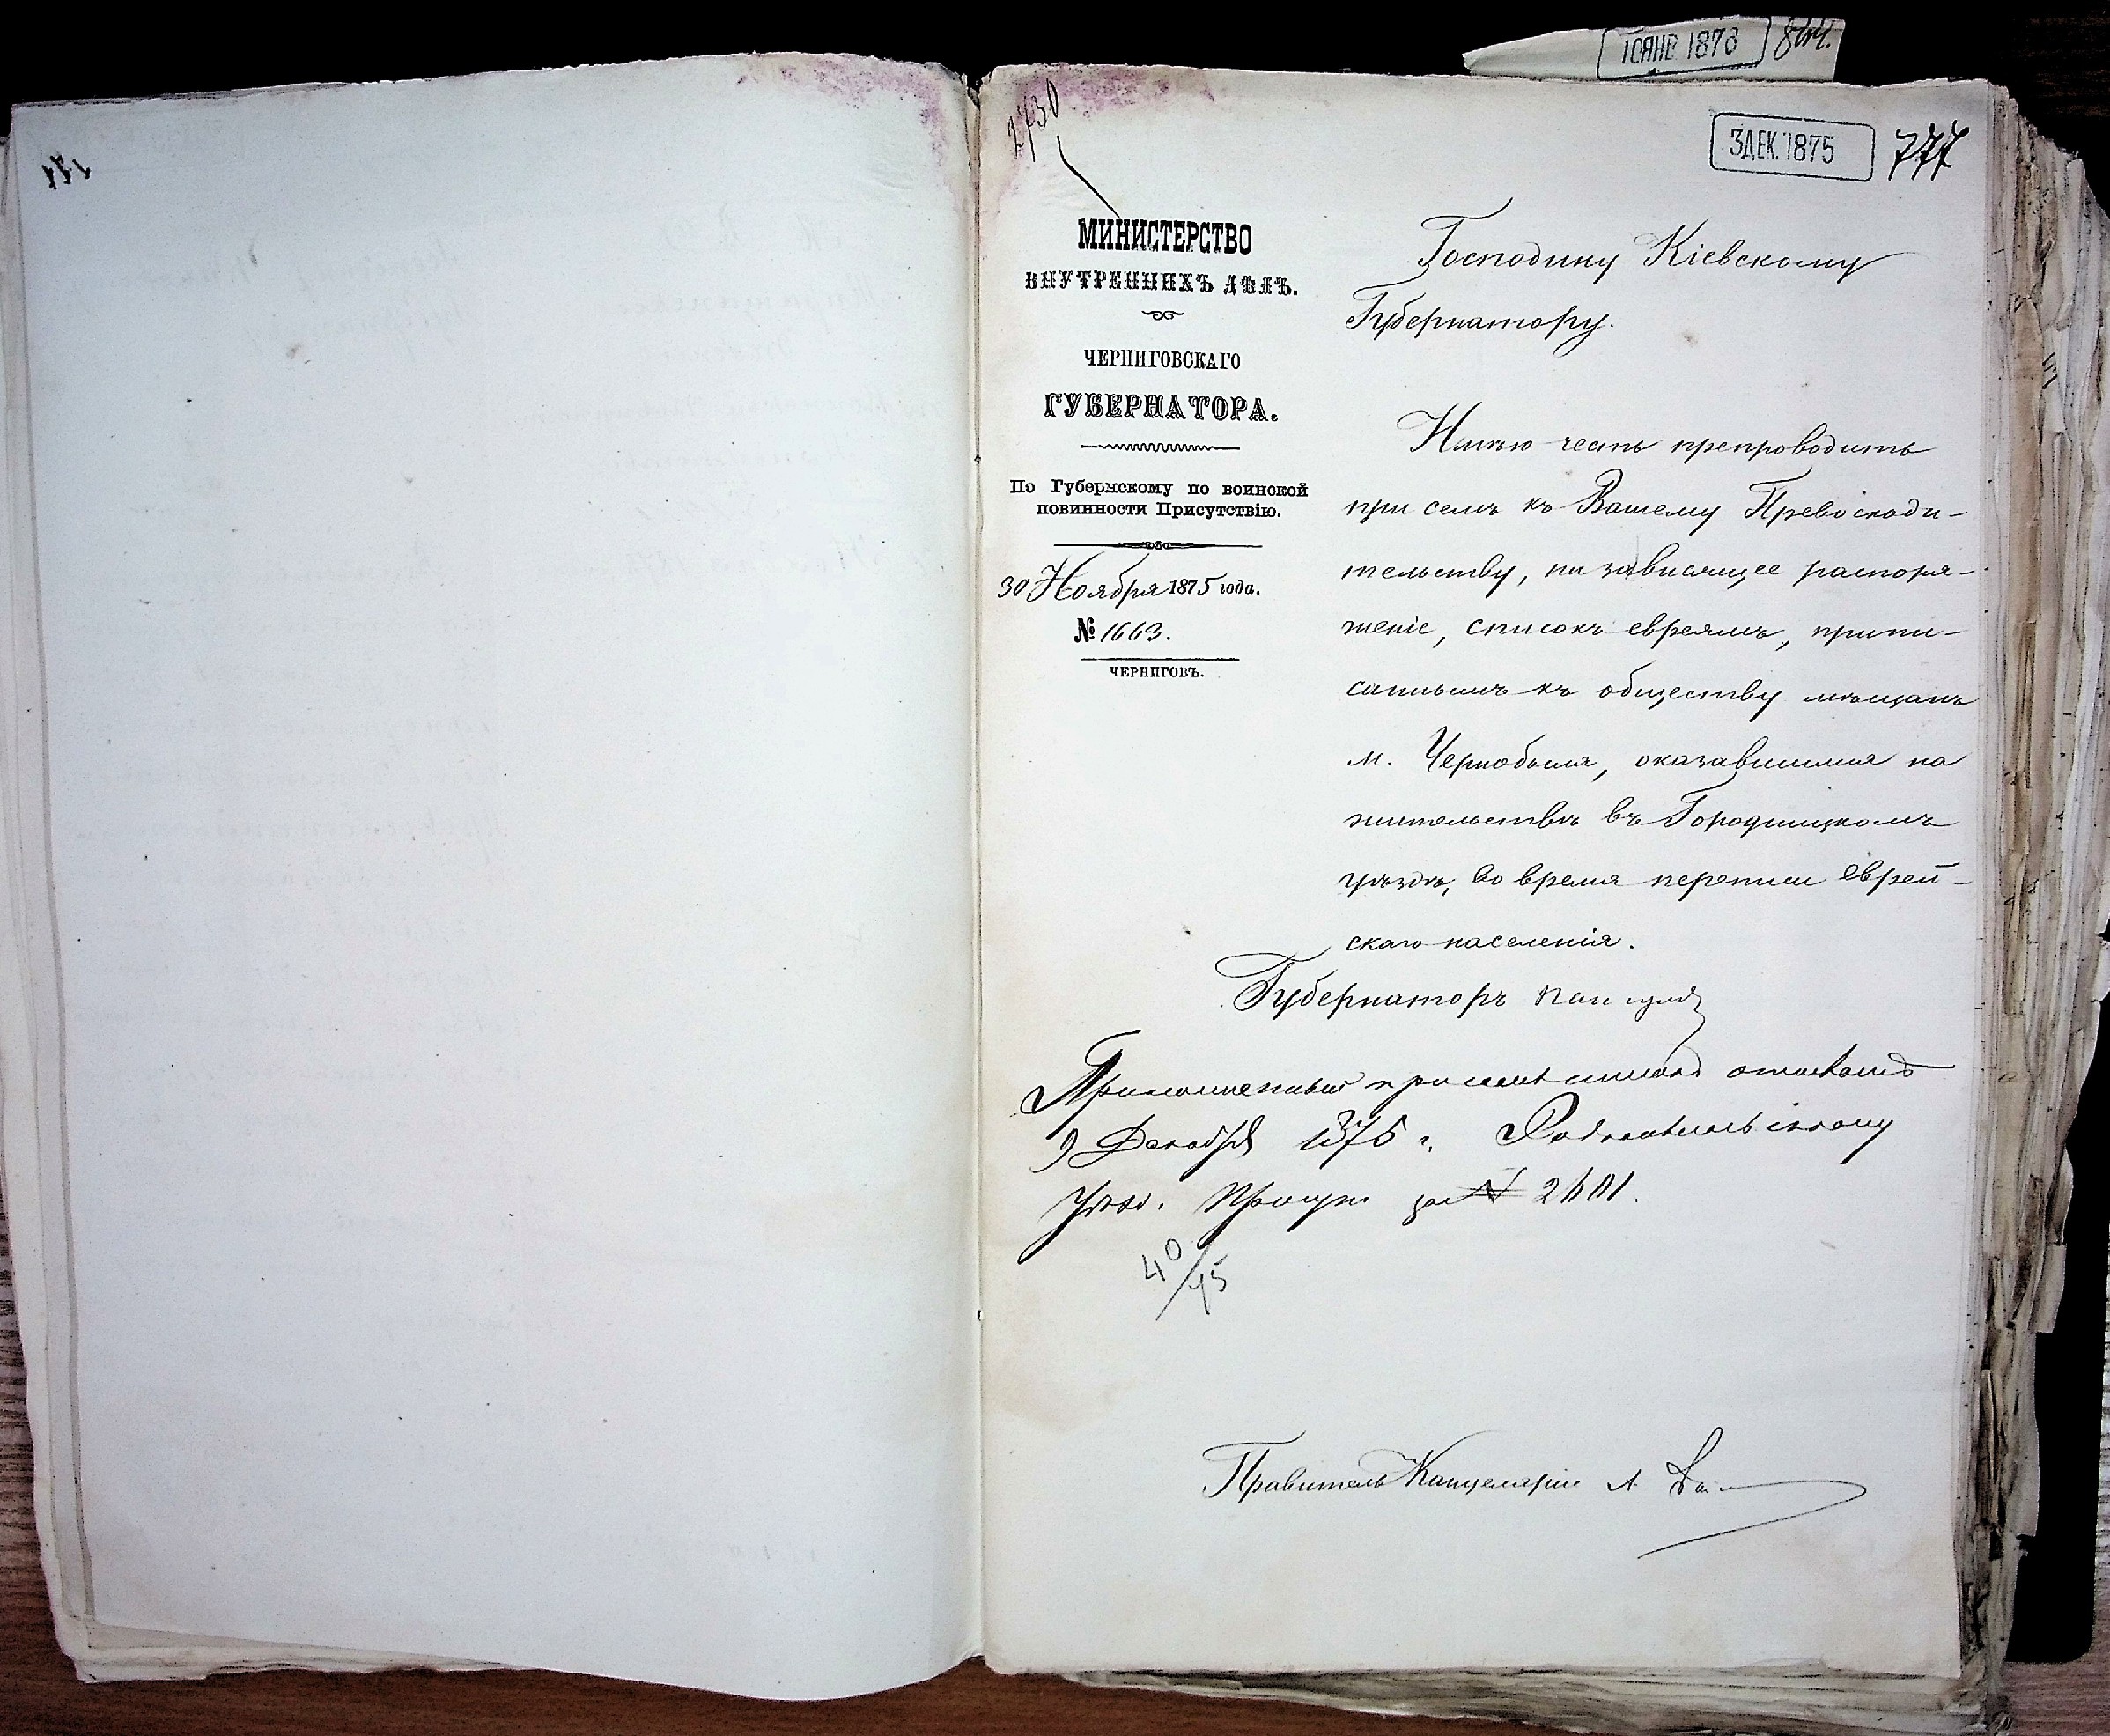 1 ЯНВ 1876
2730
3 ДЕК. 1875 777
МИНИСТЕРСТВО
ВНУТРЕННИХЪ ДѢЛЪ.
ЧЕРНИГОВСКАГО
ГУБЕРНАТОРА.
По Губернскому по воинской
повинности Присутствію.
30 Ноября 1875 года.
№ 1663.
ЧЕРНИГОВЪ.
Господину Кіевскому
Губернатору.
Имѣю честь препроводить
при семъ къ Вашему Превосходи-
тельству, на зависящее распоря-
женіе, списокъ евреямъ, припи-
саннымъ къ обществу мѣщанъ
м. Чернобыля, оказавшимся на
жительствѣ въ Городницкомъ
уѣздѣ, во время переписи еврей-
скаго населенія.
Губернаторъ
при семъ списокъ
9 Декабря 1875 г. Радомысльскому
Уѣзд. за № 2601.
40/75
Правитель Канцеляріи А.